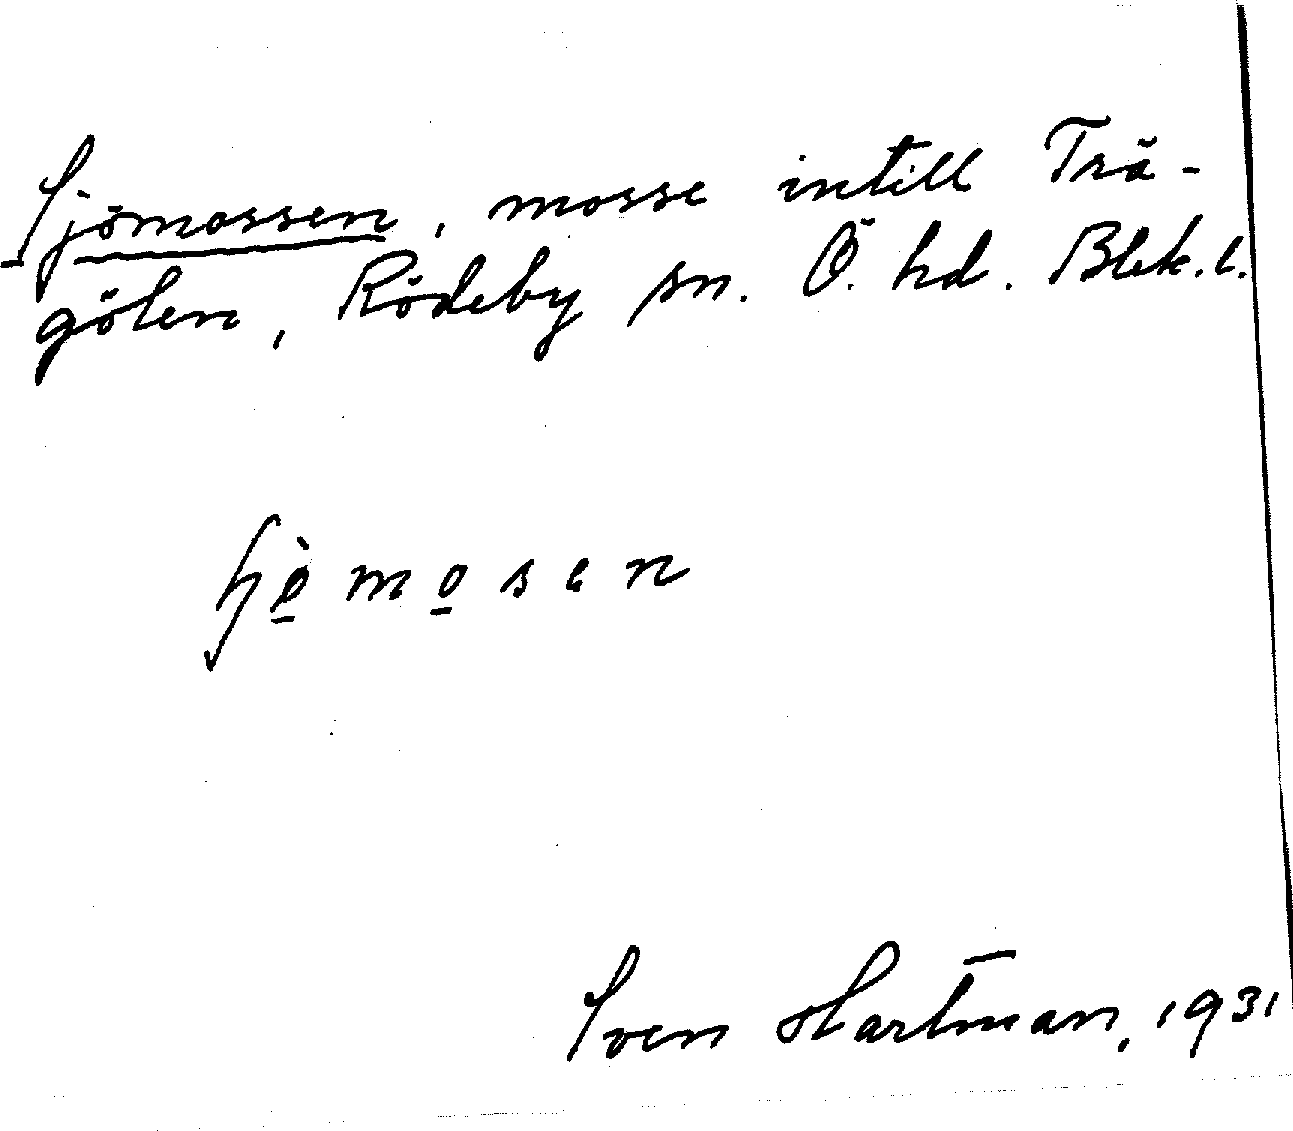 Sjömossen, mosse intill Trä-
gölen, Rödeby sn. Ö. hd. Blek. l.
mosen
Sven Hartman, 1931